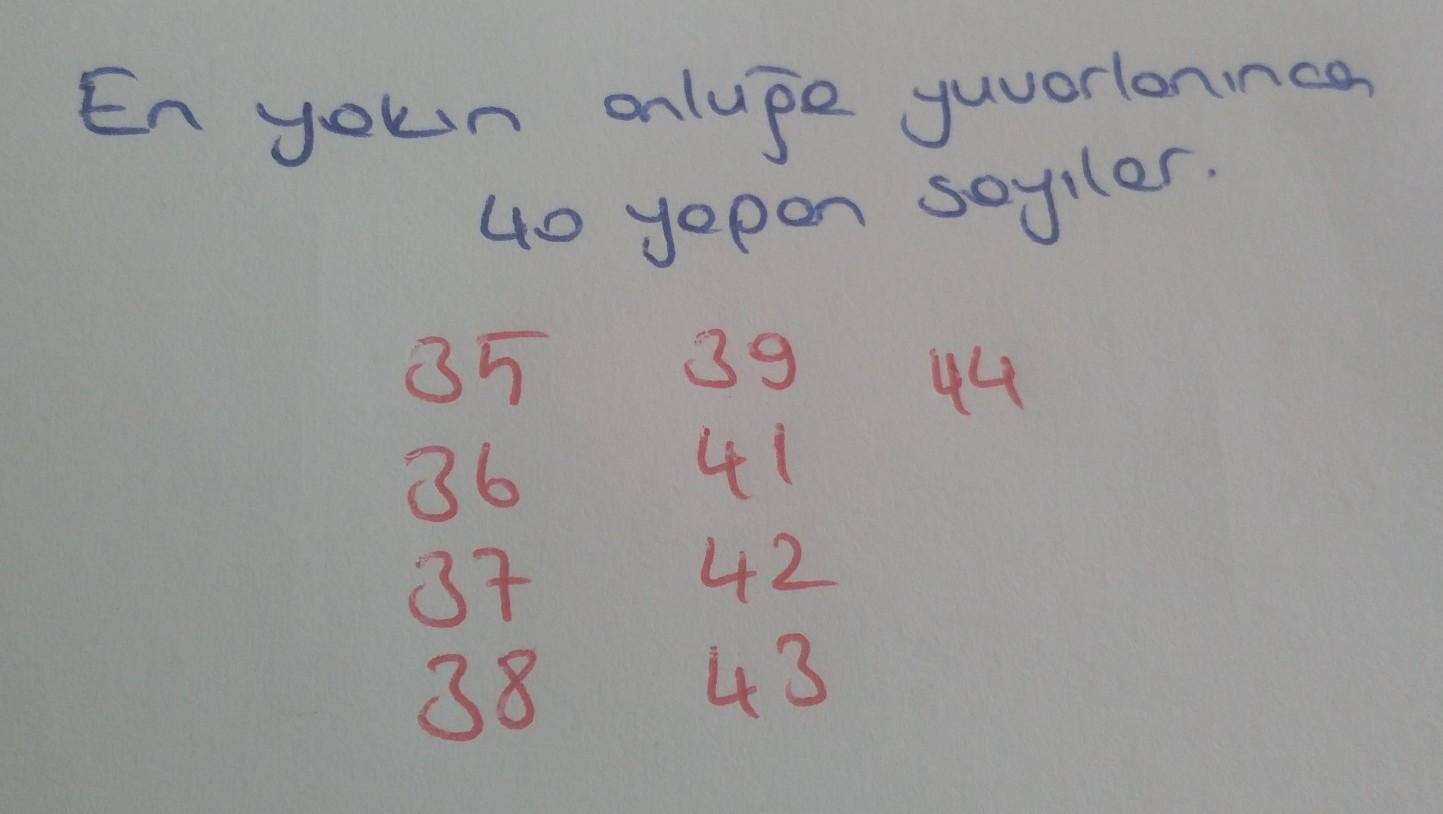 En yakın onluğa yuvarlanınca
40 yapan sayılar.
35 39 44
36 41
37 42
38 43